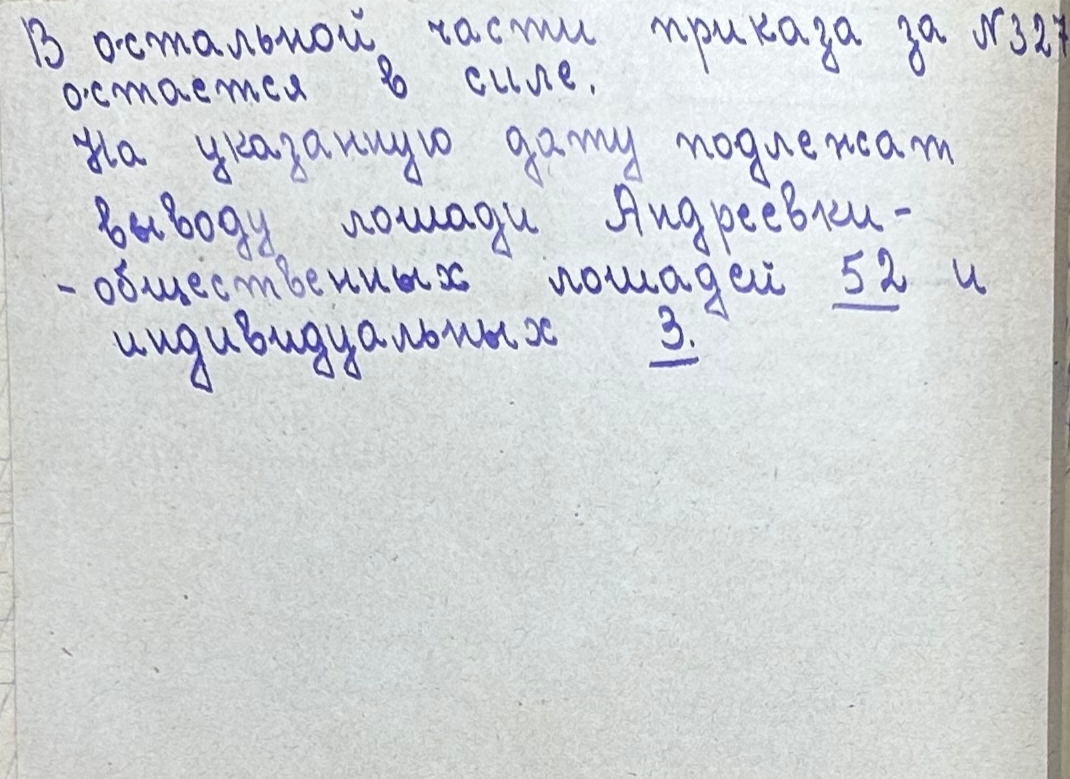 В остальной части приказа за №327
остается в силе.
На указанную дату подлежат
выводу лошади Андреевки-
- общественных лошадей 52 и
индивидуальных 3.